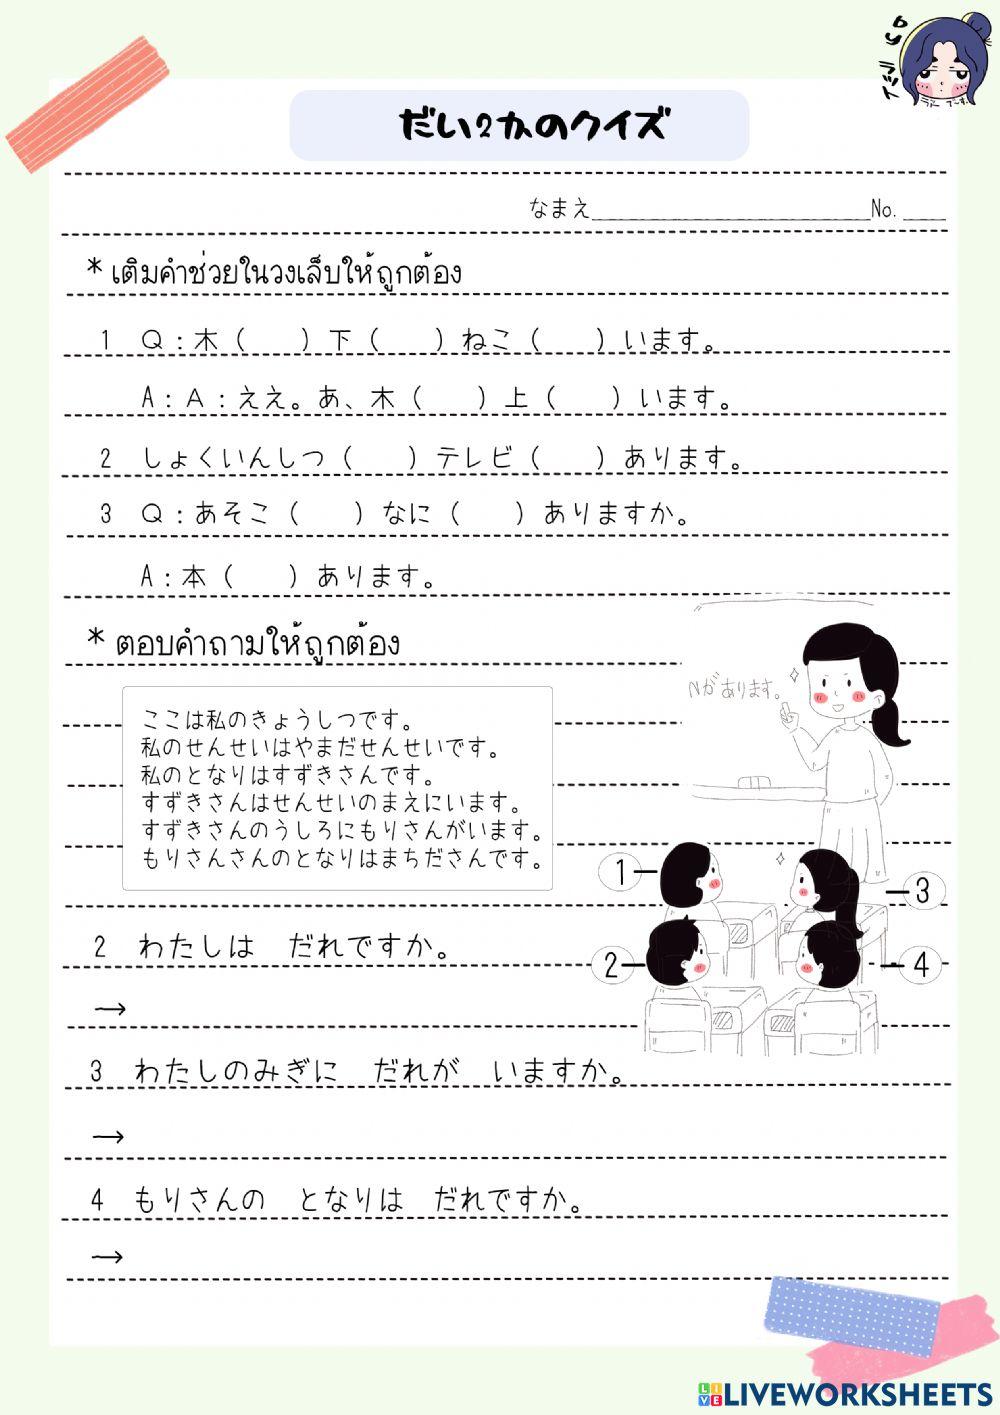 by ラット
だい2かのクイズ
なまえ______________________No. ____
* เติมคำช่วยในวงเล็บให้ถูกต้อง
1 Q：木（　　）下（　　）ねこ（　　）います。
A：A：ええ。あ、木（　　）上（　　）います。
2 しょくいんしつ（　　）テレビ（　　）あります。
3 Q：あそこ（　　）なに（　　）ありますか。
A：本（　　）あります。
* ตอบคำถามให้ถูกต้อง
Nがあります。
ここは私のきょうしつです。
私のせんせいはやまだせんせいです。
私のとなりはすずきさんです。
すずきさんはせんせいのまえにいます。
すずきさんのうしろにもりさんがいます。
もりさんさんのとなりはまちださんです。
1
3
2
4
2 わたしは　だれですか。
→
3 わたしのみぎに　だれが　いますか。
→
4 もりさんの　となりは　だれですか。
→
LIVEWORKSHEETS